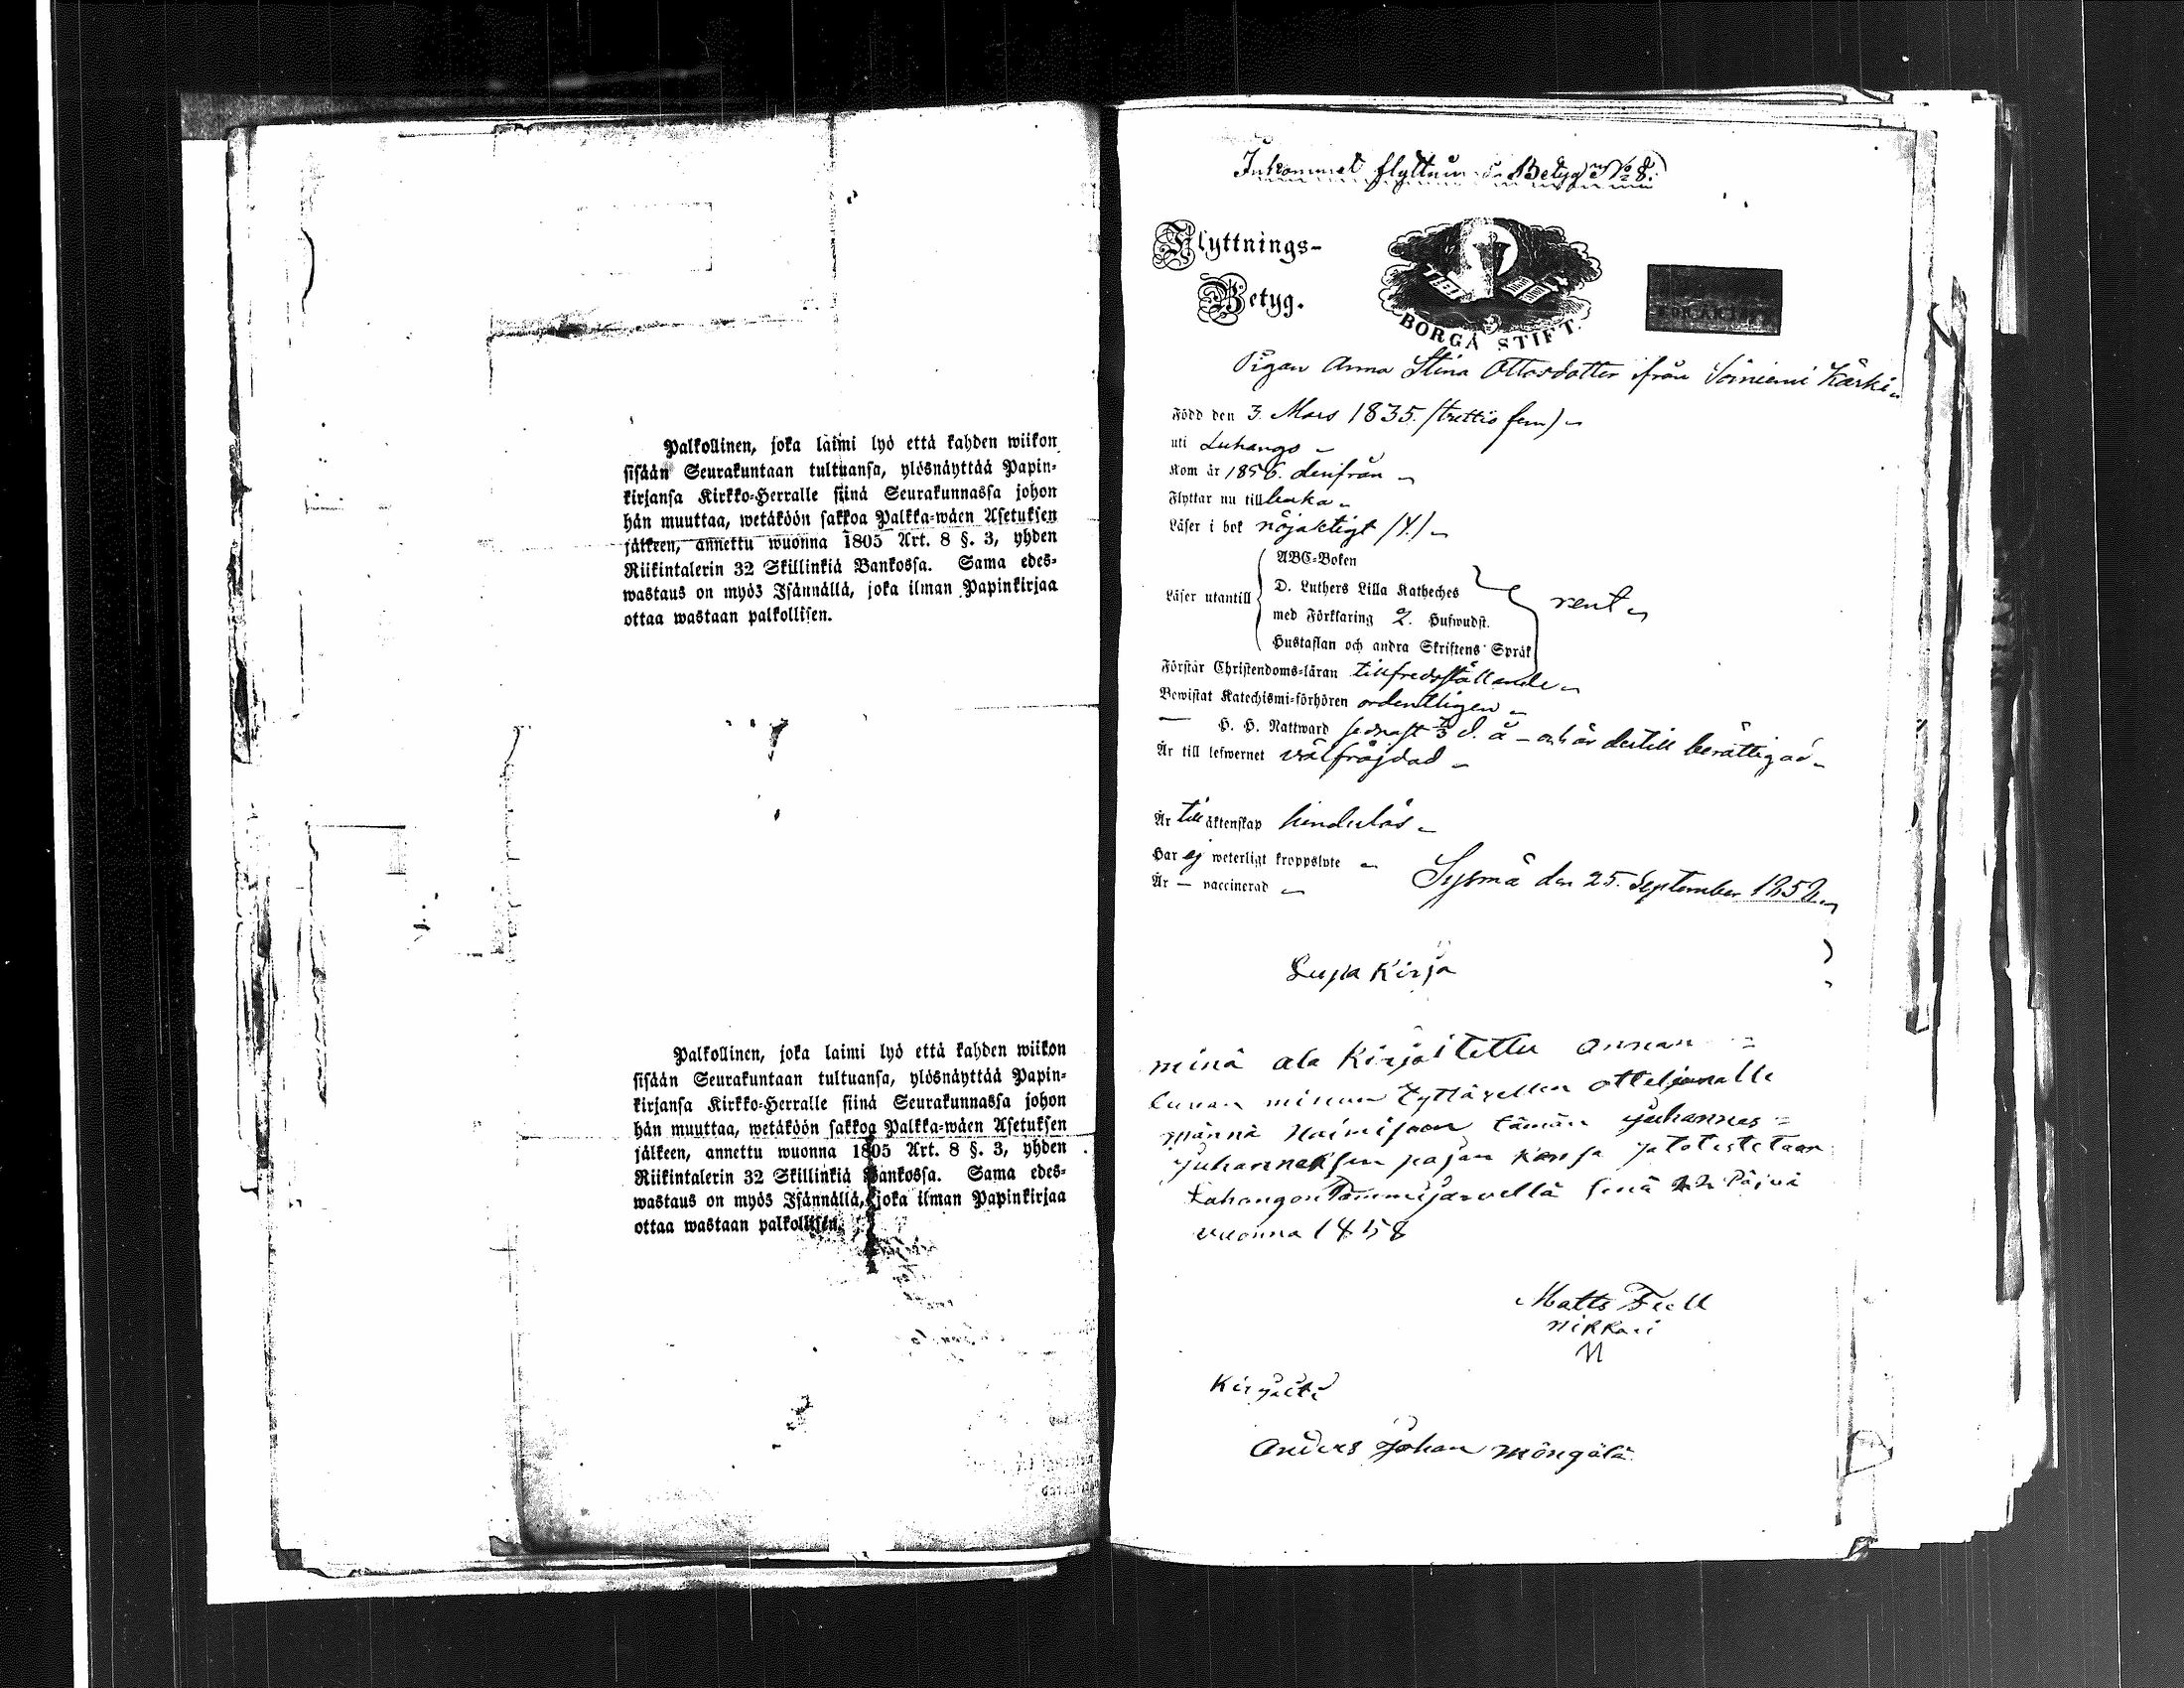 Palkollinen, joka laimi lyö että kahden wiikon
sisään Seurakuntaan tultuansa, ylösnäyttää Papin-
kirjansa Kirkko-Herralle siinä Seurakunnassa johon
hän muuttaa, wetäköön sakkoa Palkka-wäen Asetuksen
jälkeen, annettu wuonna 1805 Art. 8 §. 3, yhden
Riikintalerin 32 Skillinkiä Bankossa. Sama edes-
wastaus on myös Isännällä, joka ilman Papinkirjaa
ottaa wastaan palkollisen.
Palkollinen, joka laimi lyö että kahden wiikon
sisään Seurakuntaan tultuansa, ylösnäyttää Papin-
kirjansa Kirkko-Herralle siinä Seurakunnassa johon
hän muuttaa, wetäköön sakkoa Palkka-wäen Asetuksen
jälkeen, annettu wuonna 1805 Art. 8 §. 3, yhden
Riikintalerin 32 Skillinkiä Bankossa. Sama edes-
wastaus on myös Isännällä, joka ilman Papinkirjaa
ottaa wastaan palkollisen.
Inkommet Betyg No 8.
Flyttnings-
Betyg.
BORGÅ STIFT.
Pigan Anna Stina Ottosdotter ifrån Soiniemi Kärki
Född den 3. Mars 1835. (trettio fem)
uti Luhango
Kom år 1856. derifrån
Flyttar nu tillbaka
Läser i bok nöjaktigt
ABC-Boken
Läser utantill D. Luthers Lilla Katheches
med Förklaring 2. Hufwudst. rent
Hustaflan och andra Skriftens Språk
Förstår Christendoms-läran tillfredsställande
Bewistat Katechismi-förhören ordentligen
— H. H. Nattward sednast d. å – och är dertill berättigad
Är till lefwernet välfräjdad
Är till äktenskap hinderlös
Har ej weterligt kroppslyte
Är — vaccinerad
Sysmä den 25. September 1858.
Lupa Kirja
minä ala Kirjoitettu annan
luvan minun tyttärellen
männä Naimisoon tämän Juhannes
Juhanneksen pojan kansa ja totistetaan
Luhangon Tammijärvellä sinä 22 Päivä
vuonna 1858
Matts
nikkari
M
Kirjoitti
Anders Johan Möngölä